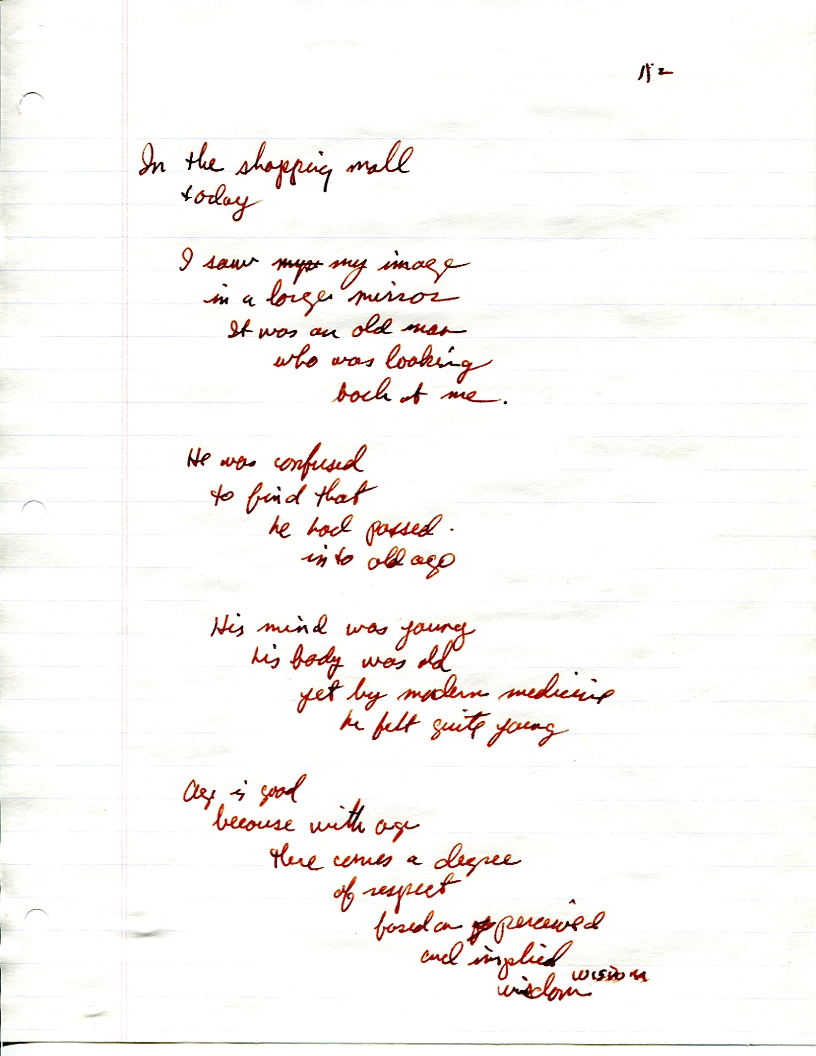 In the shopping mall
today
I saw my image
in a large mirror
It was an old man
who was looking
back at me.
He was confused
to find that
he had passed
into old age
His mind was young
his body was old
yet by modern medicine
he felt quite young
Age is good
because with age
there comes a degree
of respect
based on perceived
and implied
wisdom wisdom